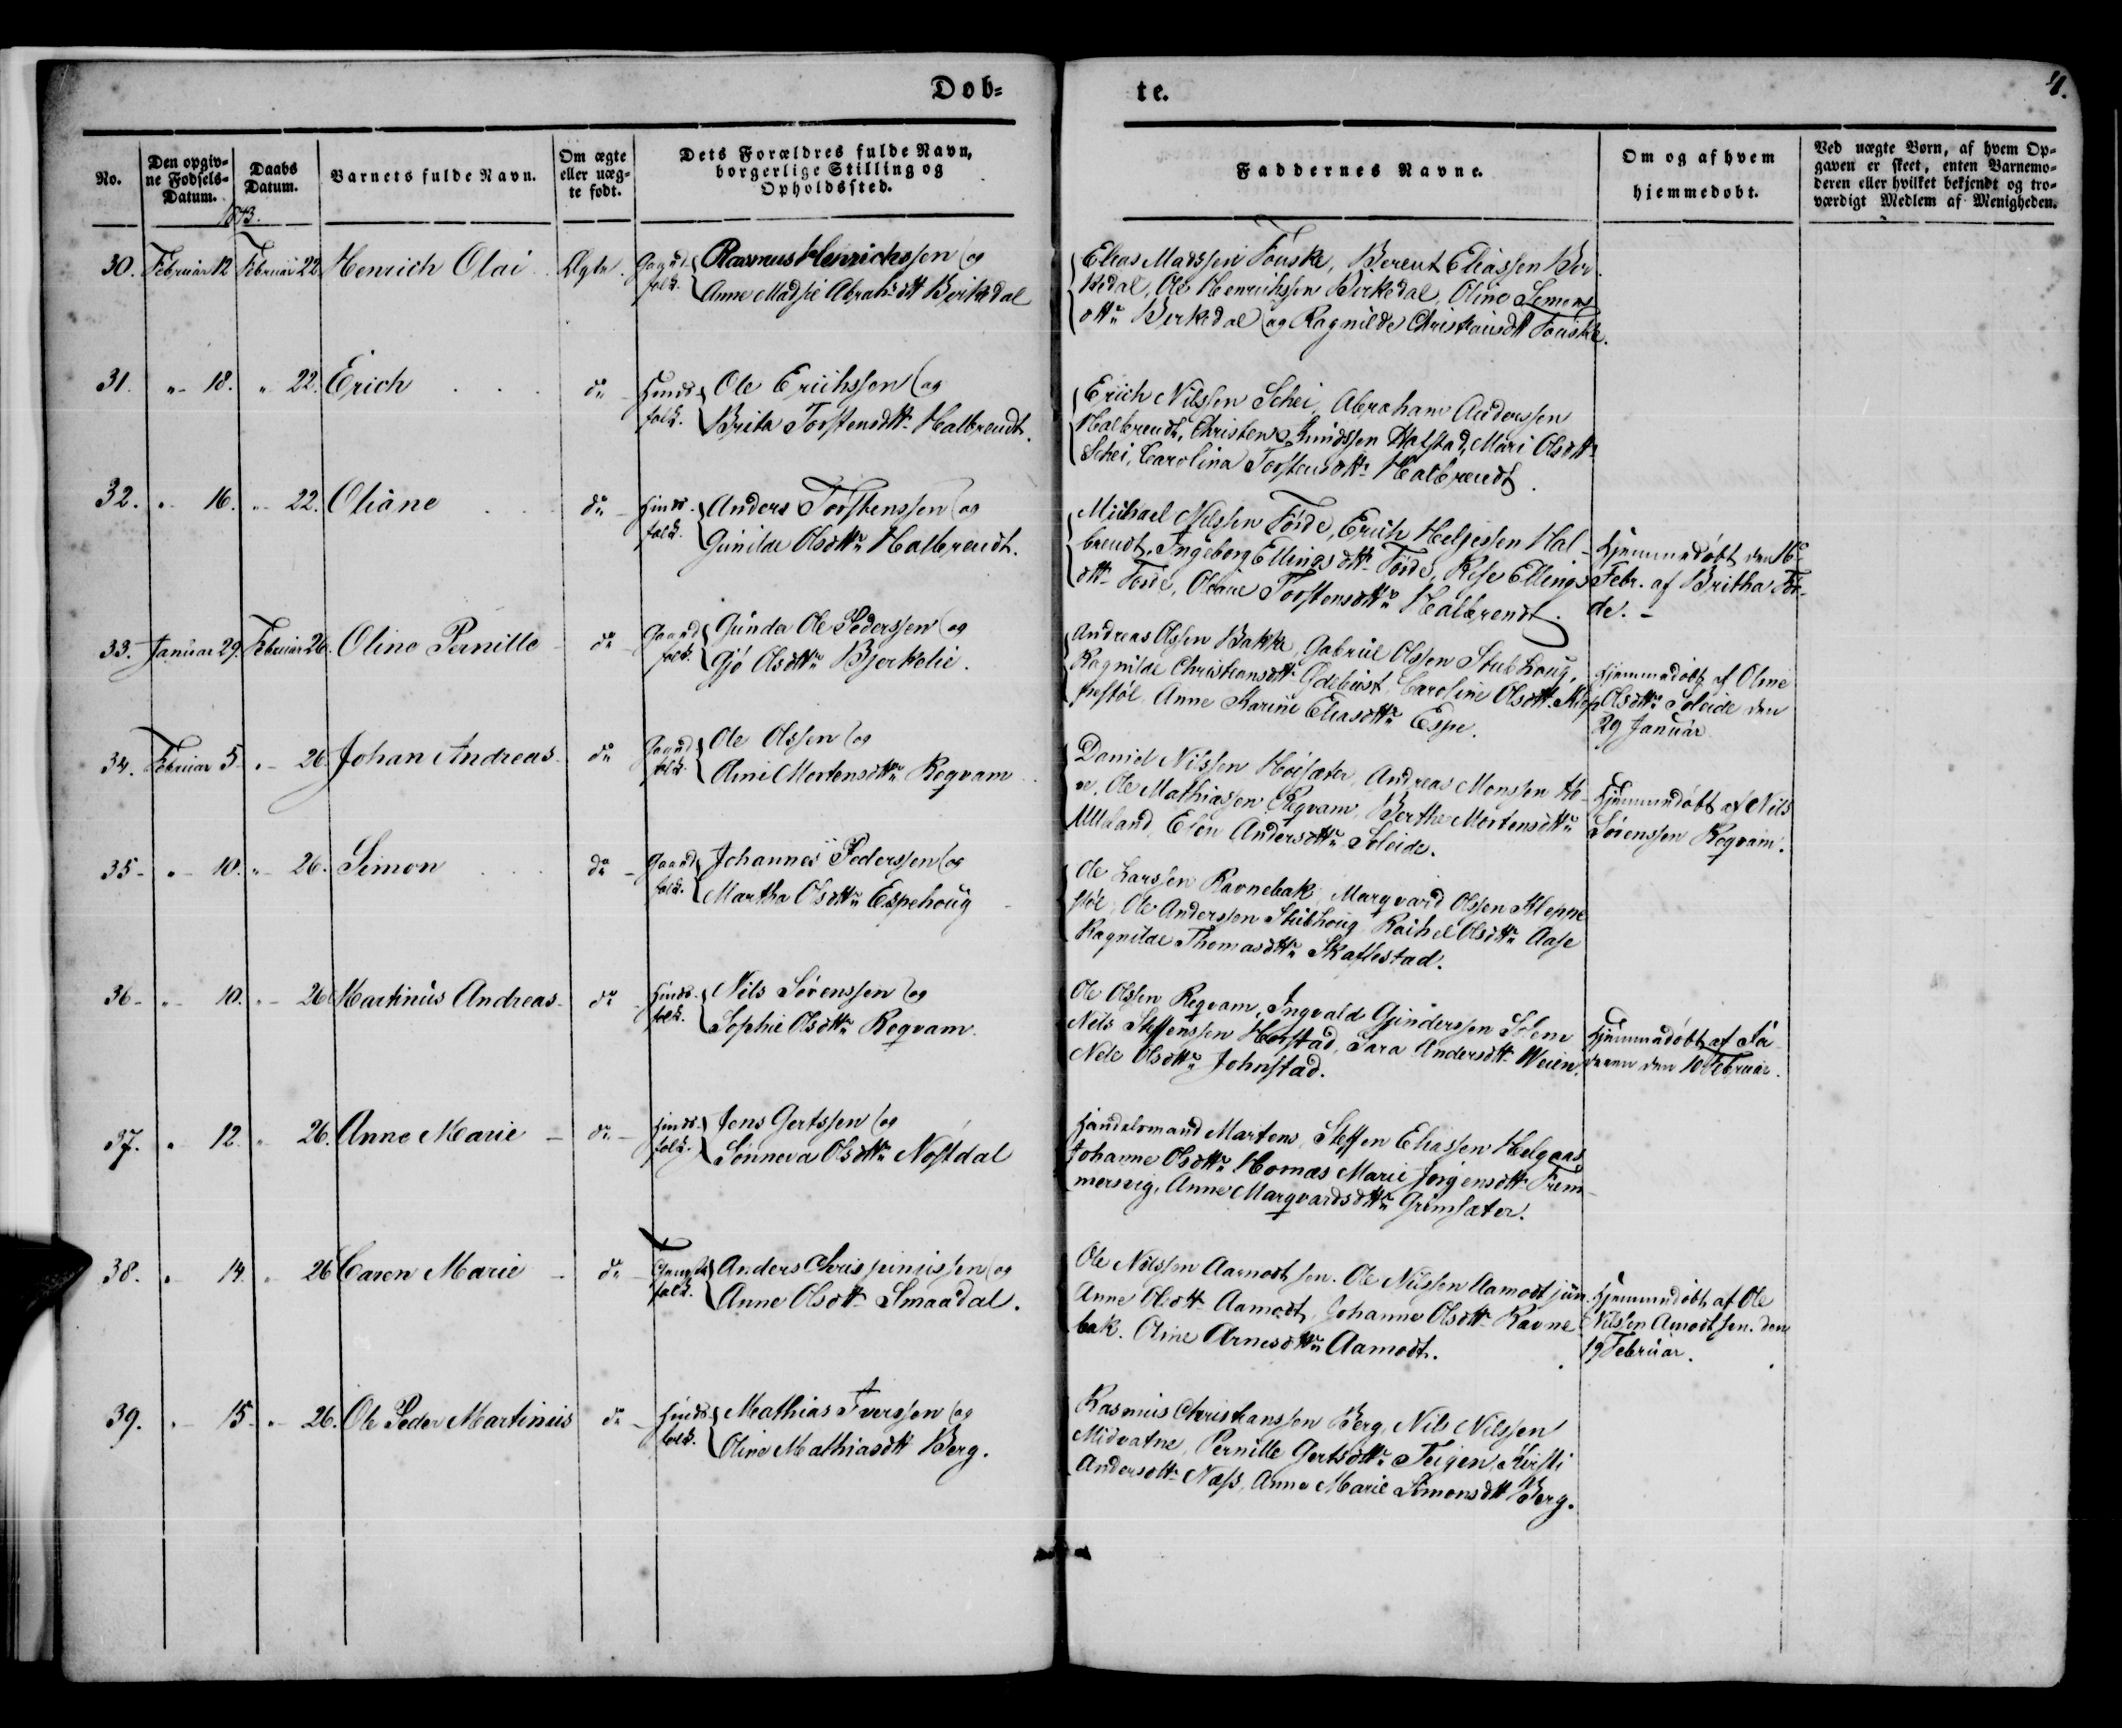 Døb-
te.
4.
No.
Den opgiv-
ne Fødsels-
Datum.
Daabs
Datum.
Barnets fulde Navn.
Om ægte
eller uæg-
te født.
Dets Forældres fulde Navn,
borgerlige Stilling og
Opholdssted.
Faddernes Navne.
Om og af hvem
hjemmedøbt.
Ved uægte Børn, af hvem Op-
gaven er skeet, enten Barnemo-
deren eller hvilket bekjendt og tro-
værdigt Medlem af Menigheden.
1843.
30. Februar 12 Februar 22 Henrich Olai Ægte. Gaard folk. Rasmus Henrichssen og
Anne Madsie Abrahdtt Birkedal
Elias Madssen Fouske, Berent Eliassen Bir-
kedal, Ole Henrichssen Birkedal, Oline Simons
dttr Birkedal og Ragnilde Christiansdtt Fouske.
31. " 18. " 22. Erich do Huusfolk. Ole Erichssen og
Brita Torstensdttr Halbrendt.
Erich Nilssen Schei, Abraham Anderssen
Halbrendt, Christen Knudssen Halstad, Mari Olsdttr
Schei, Carolina Torstensdttr Halbrendt.
32. " 16. " 22. Oliane do Huusfolk. Anders Torstenssen og
Gunilde Olsdttr Halbrendt.
Michael Nilssen Förde, Erich Helgessen Hal-
brendt, Ingeborg Ellingsdttr Förde, Elling-
dttr Förde, Oliane Torstensdttr Halbrendt.
Hjemmedøbt den 16de
Febr. af Britha För-
de. -
33. Januar 29. Februar 26. Oline Pernille do Gaardfolk. Gunder Ole Pederssen og
Gjö Olsdttr Bjerkelie.
Andreas Olssen Bakke, Gabriel Olssen Stubhoug,
Ragnilde Christiansdttr Ödeberst, Caroline Olsdtt. Klep-
pestöl, Anne Karine Eliasdttr Espe.
Hjemmedøbt af Oline
Olsdttr Soleide den
29 Januar
34. Februar 5 " 26 Johan Andreas do Gaardfolk Ole Olssen og
Oline Mortensdttr Reqvam
Daniel Nilssen Höisæter, Andreas Monssen Ho-
ve, Ole Mathiassen Reqvam, Berthe Mortensdttr
Utteland, Elen Andersdttr Soleide.
Hjemmedøbt af Nils
Sörenssen Reqvam.
35 " 10. " 26. Simon do Gaardfolk. Johannes Pederssen og
Martha Olsdttr Espehoug
Ole Larssen Ravnebak, Marqvard Olssen Kleppe-
stöl, Ole Anderssen Stubhoug, Rachel Olsdttr Aase
Ragnilde Thomasdttr Skaflestad.
36 " 10. " 26 Martinus Andreas do Huusfolk. Nils Sörenssen og
Sophie Olsdttr Reqvam
Ole Olssen Reqvam, Ingvald Gunderssen Solem
Nils Steffenssen Hestad, Sara Andersdttr Weien,
Nele Olsdttr Johnstad.
Hjemmedøbt af Fa-
deren den 10 Februar.
37. " 12. " 26. Anne Marie do Huusfolk. Jens Gertssen og
Sönneva Olsdttr Nøstdal
Handelsmand Martens, Steffen Eliassen Helgaas
Johanne Olsdttr Hornæs Marie Jörgensdttr Frem-
mersvig, Anne Marqvardsdttr Grimsæter.
38. " 14. " 26 Caren Marie do folk. Anders Chrispinussen og
Anne Olsdttr Smaadal.
Ole Nilssen Aamodt sen. Ole Nilssen Aamodt jun.
Anne Olsdttr Aamodt, Johanne Olsdttr Ravne-
bak. Oline Arnesdttr Aamodt.
Hjemmedøbt af Ole
Nilssen Amodt sen. den
19 Februar.
39. " 15 " 26. Ole Peder Martinius do Huusfolk. Mathias Iverssen og
Oline Mathiasdtt Berg.
Rasmus Christianssen Berg, Nils Nilssen
Midvatne, Pernille Gertsdttr Teigen, Kirsti
Andersdttr Næss, Anne Marie Simonsdtt Berg.